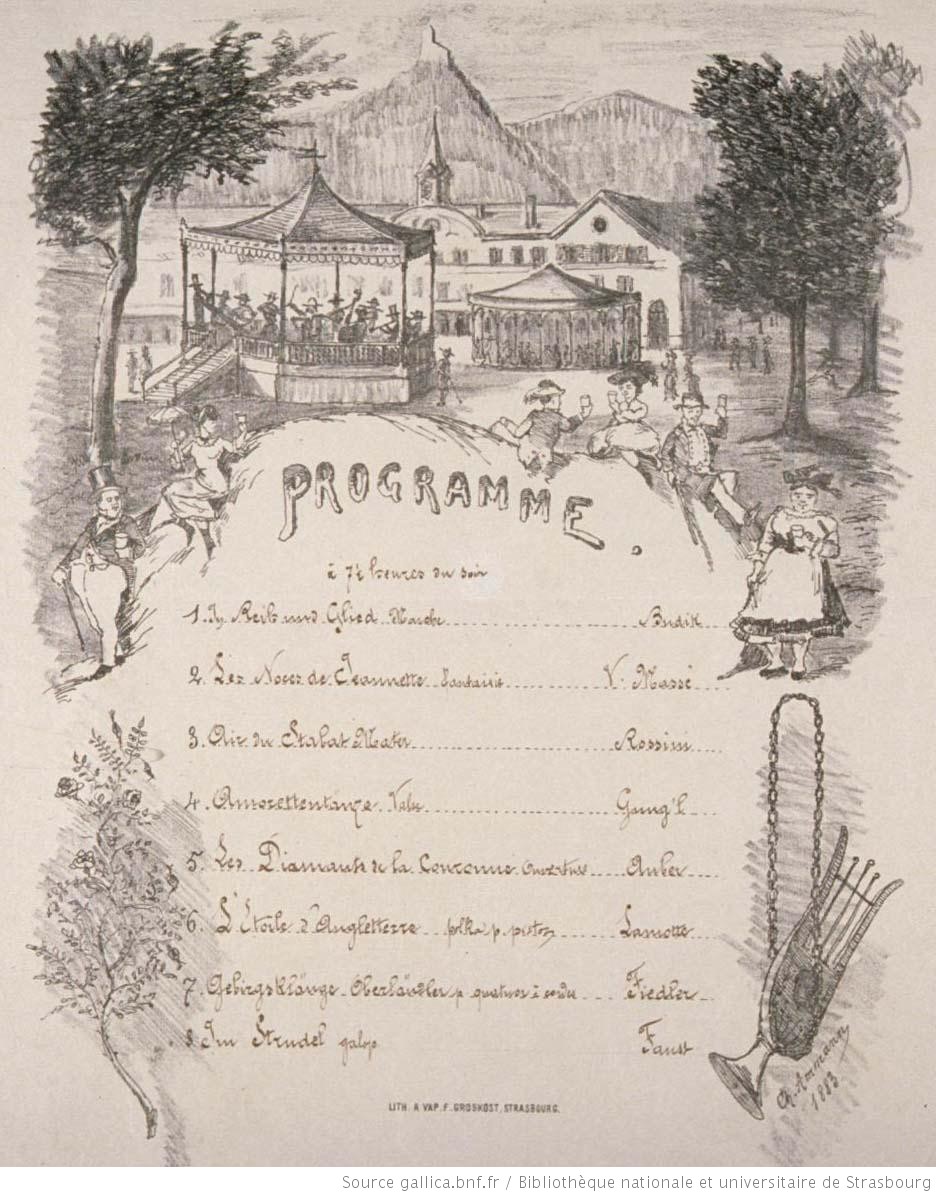 PROGRAMME.
à 7½ heures du soir
1. In Reih und Glied Marche Budik
2. Les Noces de Jeannette Fantaisie V. Massé
3. Air du Stabat Mater Rossini
4. Amorettentänze Valse Gung'l
5. Les Diamants de la Couronne Ouverture Auber
6. L'Étoile d'Angletterre polka p. piston Lamotte
7. Gebirgsklänge Oberländler p. quatuor à cordes Fiedler
8. Im Strudel galop Faust
Ch. Ammann
1883
LITH. A VAP. F. GROSKOST, STRASBOURG.
Source gallica.bnf.fr / Bibliothèque nationale et universitaire de Strasbourg